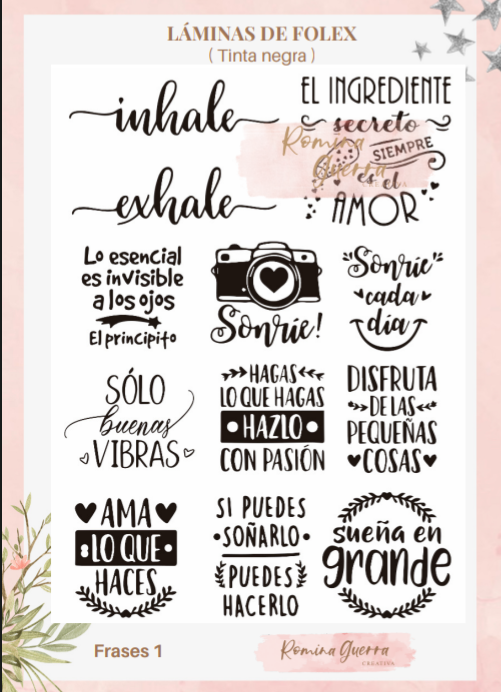 LÁMINAS DE FOLEX
( Tinta negra )
inhale
exhale
EL INGREDIENTE
secreto
SIEMPRE
es el
AMOR
Romina
Guerra
CREATIVA
Lo esencial
es invisible
a los ojos
El principito
Sonríe!
"Sonríe"
cada
día
SÓLO
buenas
VIBRAS
HAGAS
LO QUE HAGAS
• HAZLO •
CON PASIÓN
DISFRUTA
DE LAS
PEQUEÑAS
♥COSAS♥
♥AMA♥
LO QUE
HACES
SI PUEDES
•SOÑARLO•
PUEDES
HACERLO
sueña en
grande
Frases 1
Romina Guerra
CREATIVA